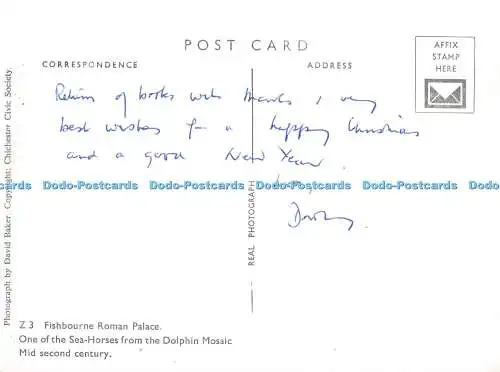 POST CARD
CORRESPONDENCE
ADDRESS
AFFIX
STAMP
HERE
Return of books with thanks & very
best wishes for a happy Christmas
and a good New Year.
Dodo-Postcards Dodo-Postcards Dodo-Postcards Dodo-Postcards
REAL PHOTOGRAPH
Photograph by David Baker. Copyright: Chichester Civic Society.
Z 3 Fishbourne Roman Palace.
One of the Sea-Horses from the Dolphin Mosaic
Mid second century.